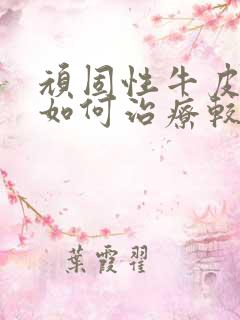 頑固性牛皮
如何治療較
葉霞翟